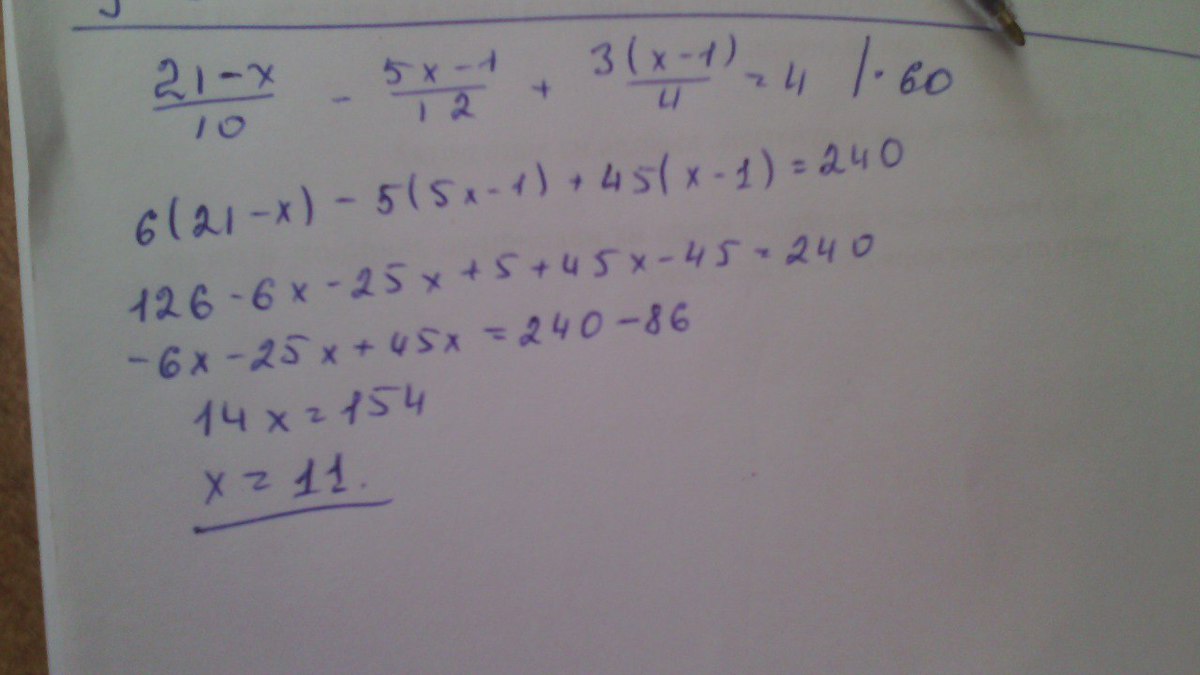 21-x/10 - 5x-1/12 + 3(x-1)/4 = 4 /·60
6(21-x) - 5(5x-1) + 45(x-1) = 240
126-6x-25x+5+45x-45=240
-6x-25x+45x=240-86
14x=154
x=11.